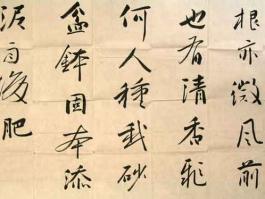 根亦微风前
也有清香飛
何人種我砂
盆鉢固本添
泥自後肥